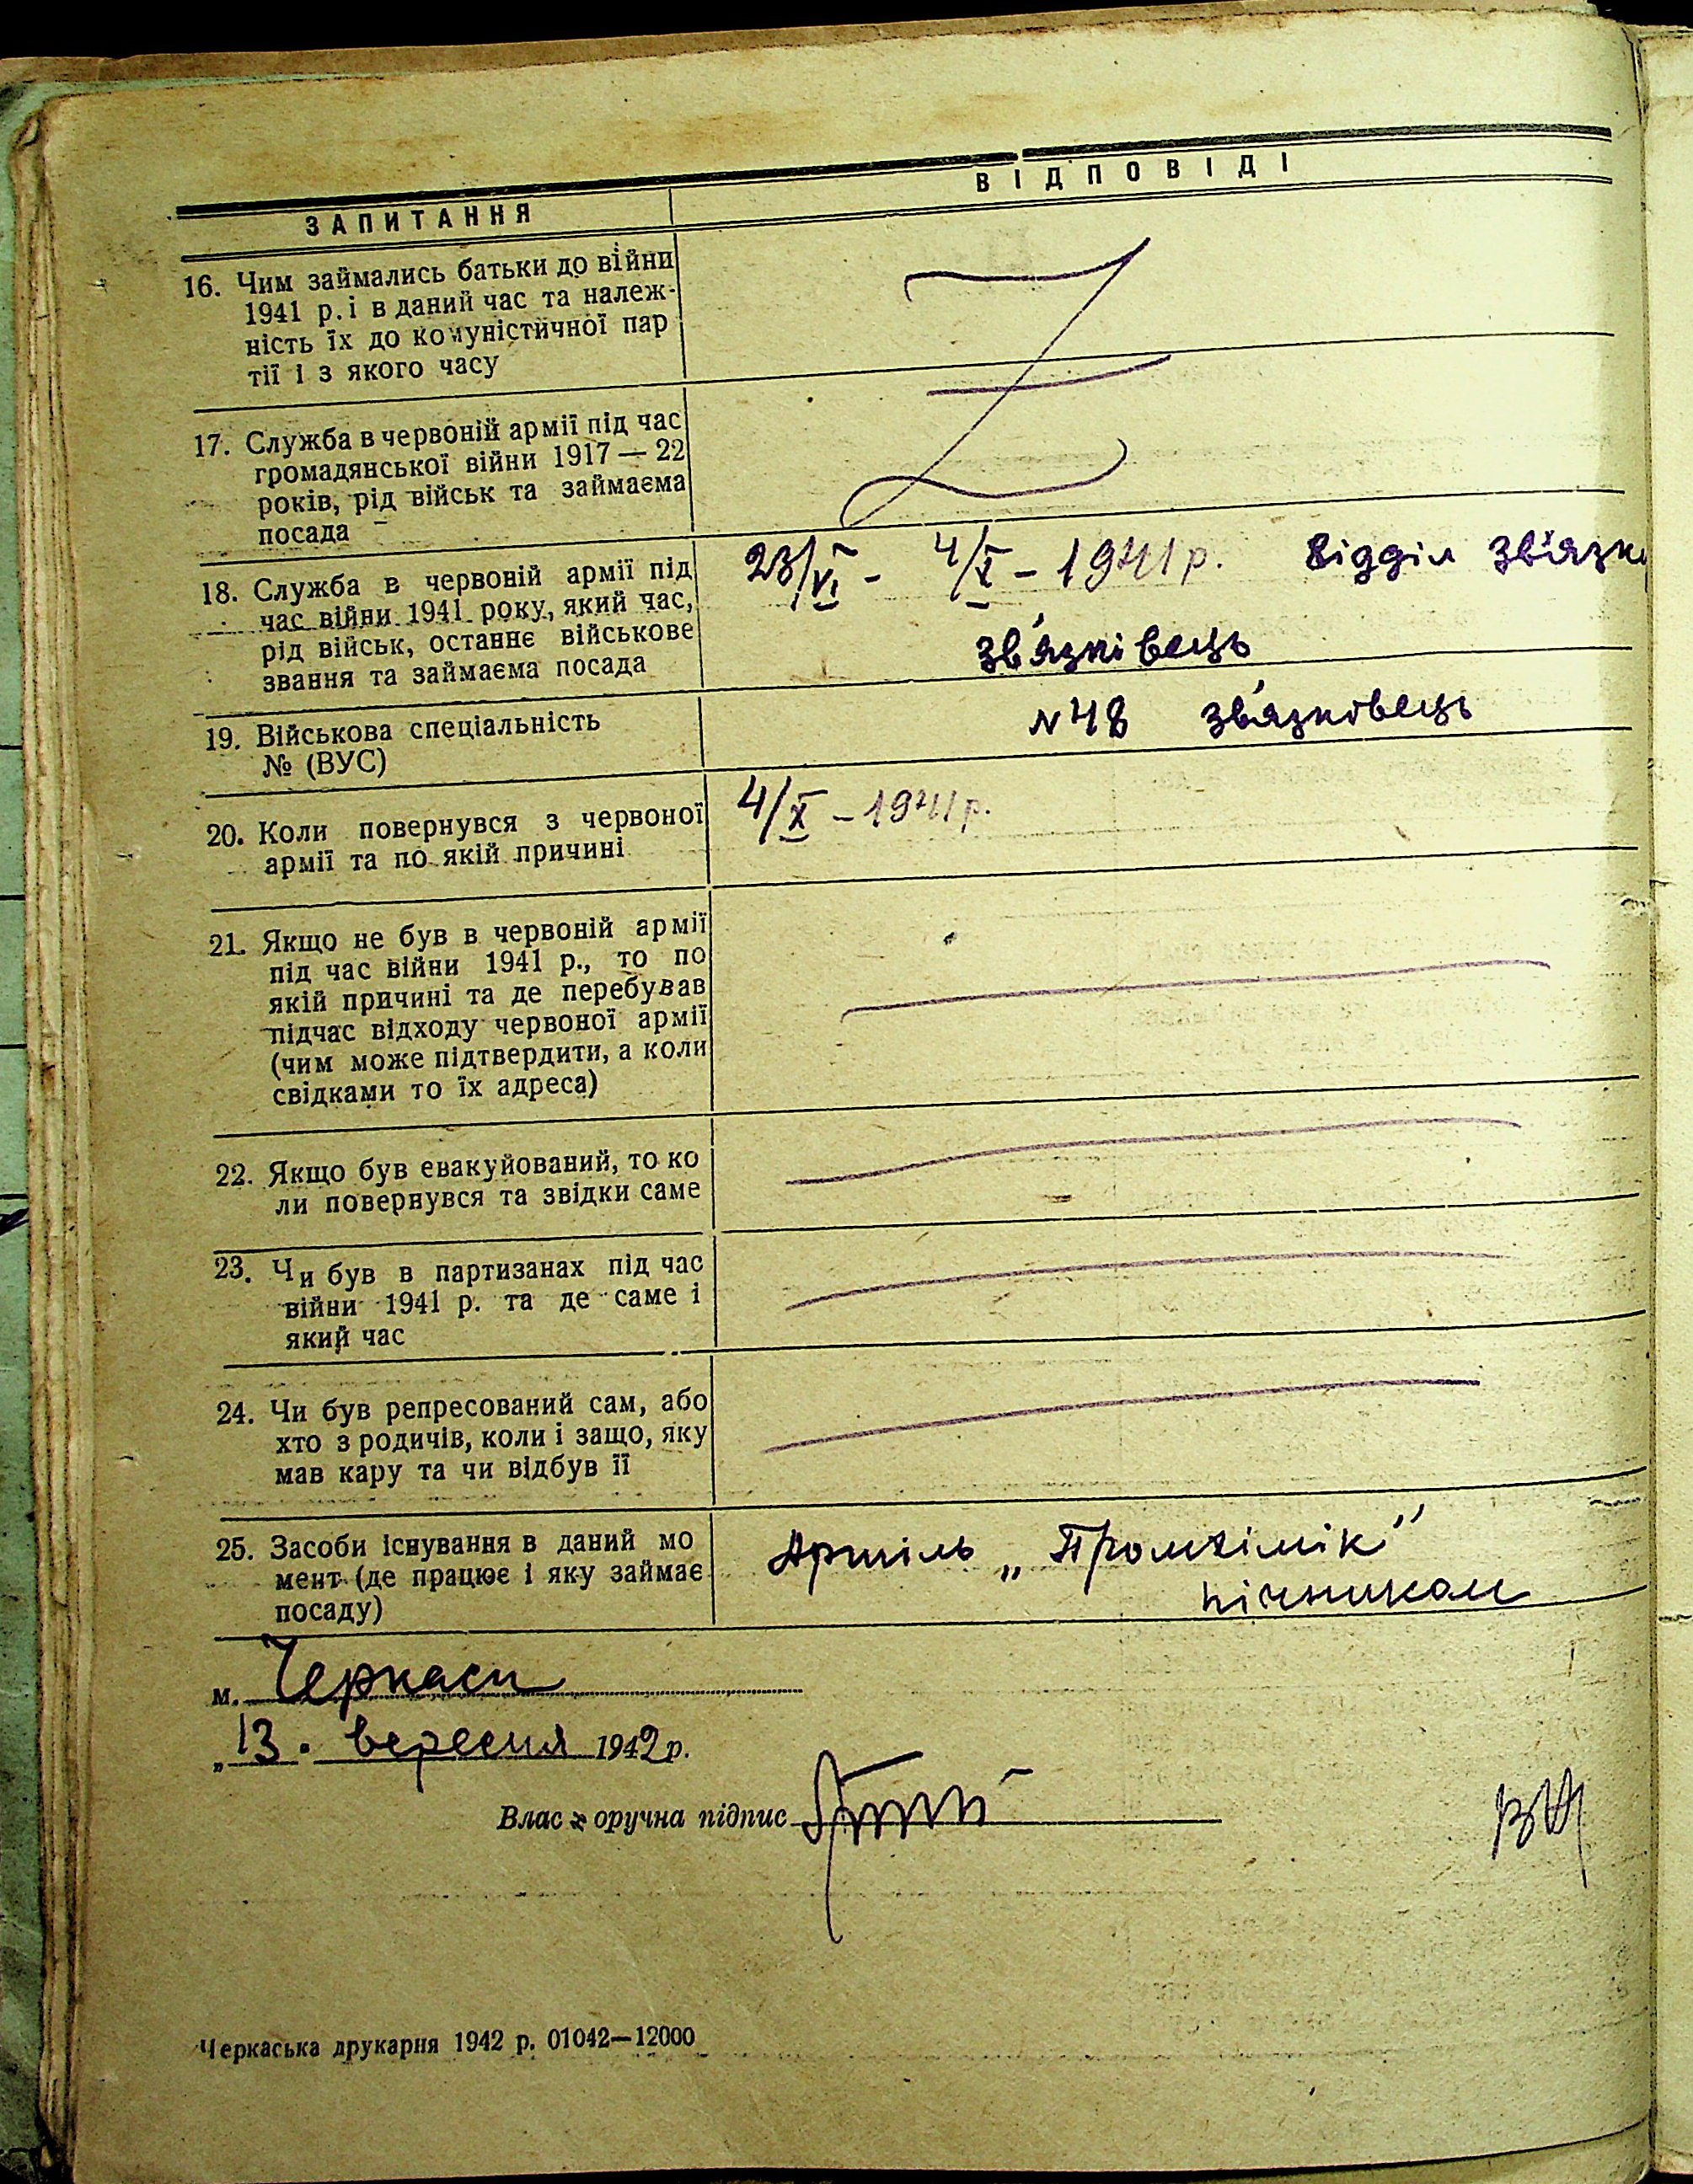 ЗАПИТАННЯ
ВІДПОВІДІ
16. Чим займались батьки до війни
1941 р. і в даний час та належ-
ність їх до комуністичної пар
тії і з якого часу
17. Служба в червоній армії під час
громадянської війни 1917 — 22
років, рід військ та займаєма
посада
18. Служба в червоній армії під
час війни 1941 року, який час,
рід військ, останнє військове
звання та займаєма посада
23/VI - 4/X - 1941 р. Відділ зв'язку
зв'язківець
19. Військова спеціальність
№ (ВУС)
N 48 зв'язківець
20. Коли повернувся з червоної
армії та по якій причині
4/X - 1941 р.
21. Якщо не був в червоній армії
під час війни 1941 р., то по
якій причині та де перебував
підчас відходу червоної армії
(чим може підтвердити, а коли
свідками то їх адреса)
22. Якщо був евакуйований, то ко
ли повернувся та звідки саме
23. Чи був в партизанах під час
війни 1941 р. та де саме і
який час
24. Чи був репресований сам, або
хто з родичів, коли і защо, яку
мав кару та чи відбув її
25. Засоби існування в даний мо
мент (де працює і яку займає
посаду)
Артіль „Промхімік"
пічником
м. Черкаси
„13. вересня 1942 р.
Влас оручна підпис
Черкаська друкарня 1942 р. 01042—12000